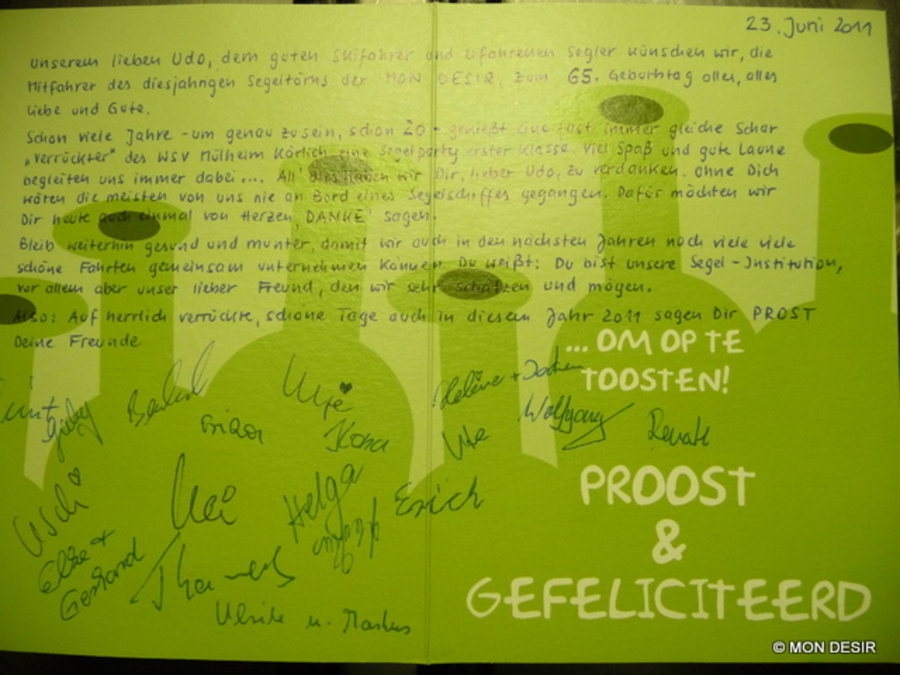 23. Juni 2011
Unserem lieben Udo, dem guten Skifahrer und erfahrenen Segler wünschen wir, die
Mitfahrer des diesjährigen Segeltörns der MON DESIR, zum 65. Geburtstag alles, alles
Liebe und Gute.
Schon viele Jahre - um genau zu sein, schon 20 - genießt eine fast immer gleiche Schar
„verrückter" des WSV Mülheim Kärlich eine Segelparty erster Klasse. Viel Spaß und gute Laune
begleiten uns immer dabei.... All' dies haben wir Dir, lieber Udo, zu verdanken. Ohne Dich
wären die meisten von uns nie an Bord eines Segelschiffes gegangen. Dafür möchten wir
Dir heute auch einmal von Herzen, DANKE' sagen.
Bleib weiterhin gesund und munter, damit wir auch in den nächsten Jahren noch viele viele
schöne Fahrten gemeinsam unternehmen können. Du weißt: Du bist unsere Segel-Institution,
vor allem aber unser lieber Freund, den wir sehr schätzen und mögen.
Also: Auf herrlich verrückte, schöne Tage auch in diesem Jahr 2011 sagen Dir PROST
Deine Freunde
... OM OP TE
TOOSTEN!
Gaby
Helene + Jochen
Ilona
Ute
Wolfgang
Renate
Uschi
Helga
Erich
Elke +
Gerhard
Thomas
Ulrike u. Markus
PROOST
&
GEFELICITEERD
© MON DESIR